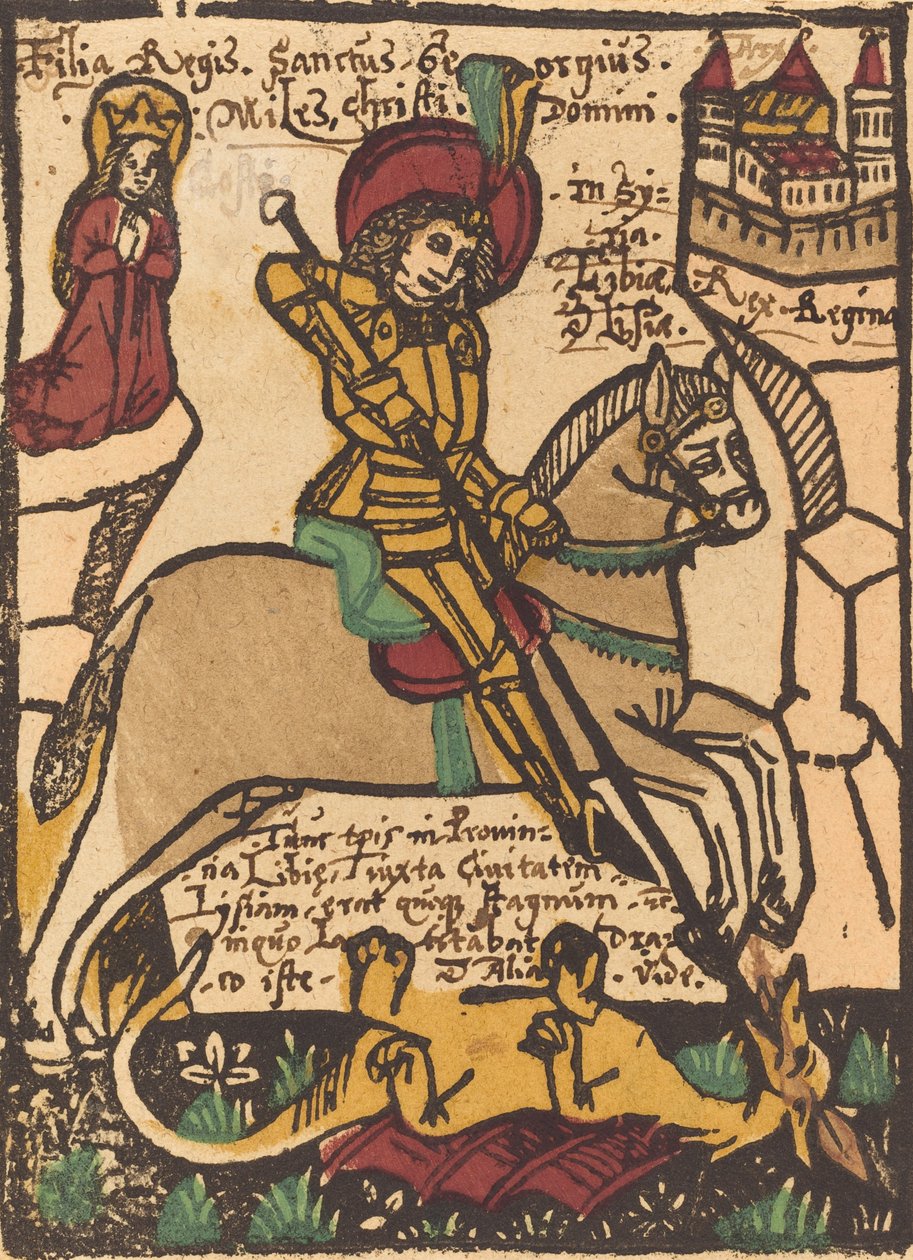 Filia Regis. Sanctus Georgius.
Miles, christi. Domini
in Sy-
ria.
Rex. Regina
Tunc tpis in Provin-
cia Libię, Juxta Civitatem
Lysiam, erat quoque stagnum
in quo latitabat dra-
co iste. Alia Vide.